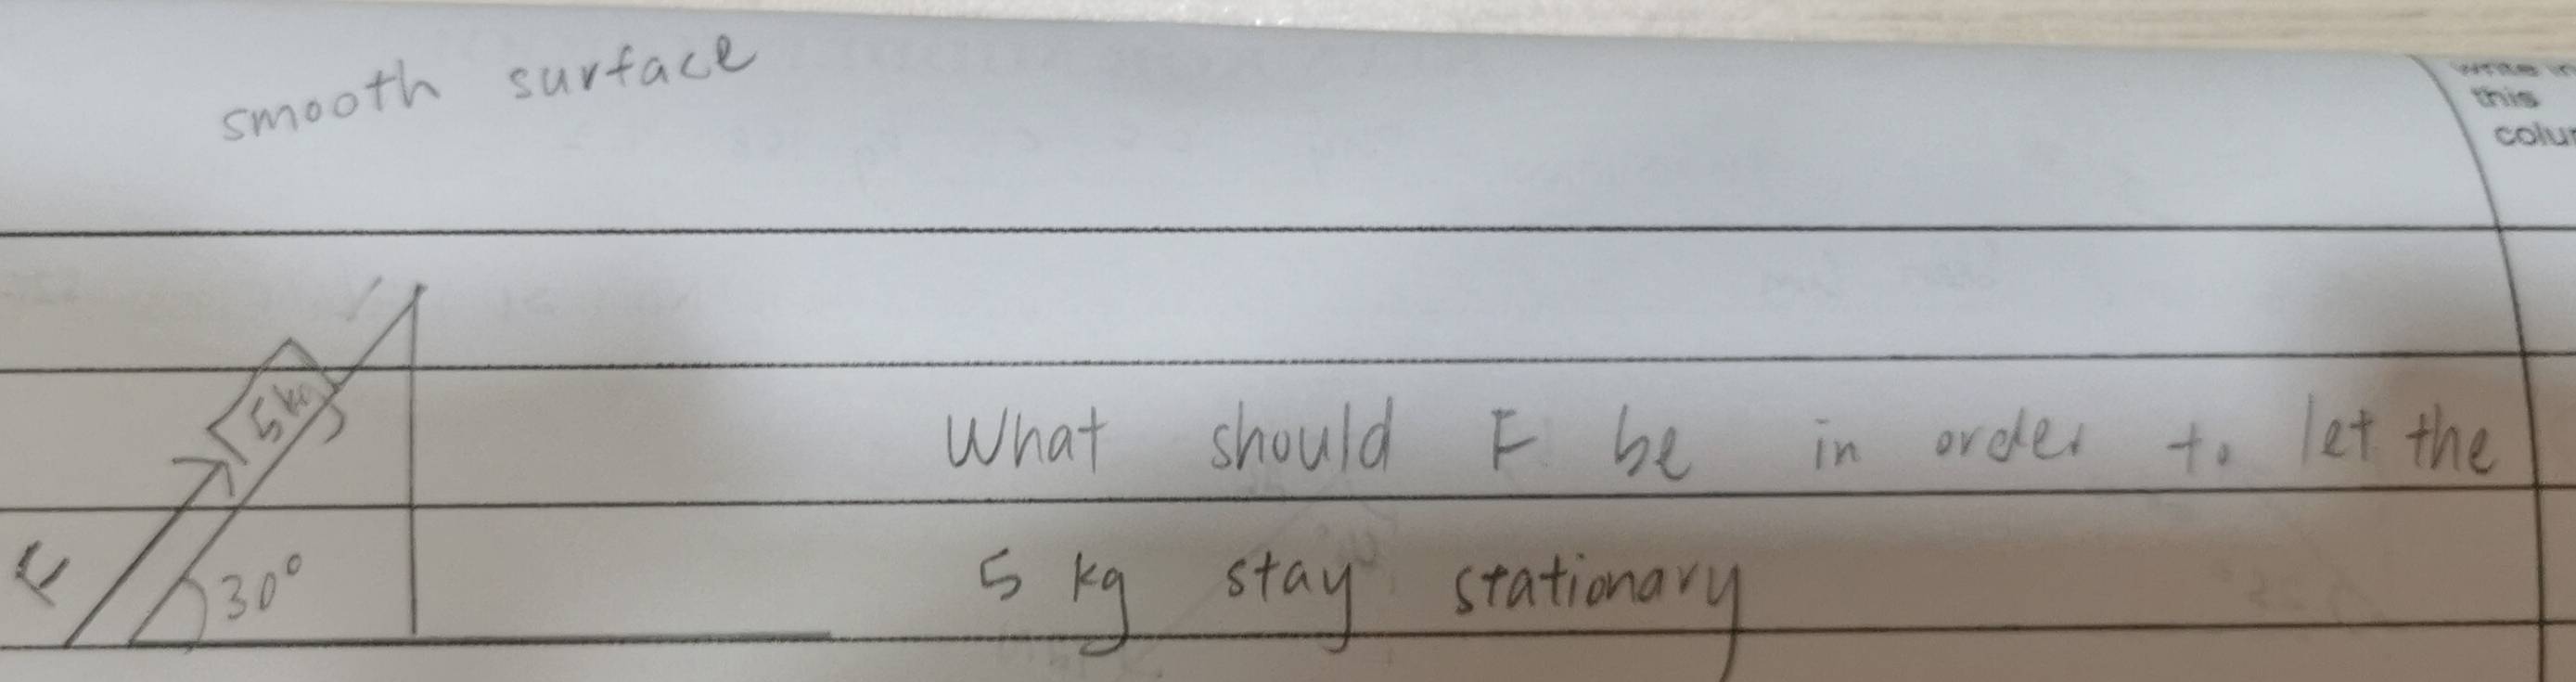 smooth surface
write in
this
colu
5 kg
What should F be in order to let the
F
30°
5 kg stay stationary